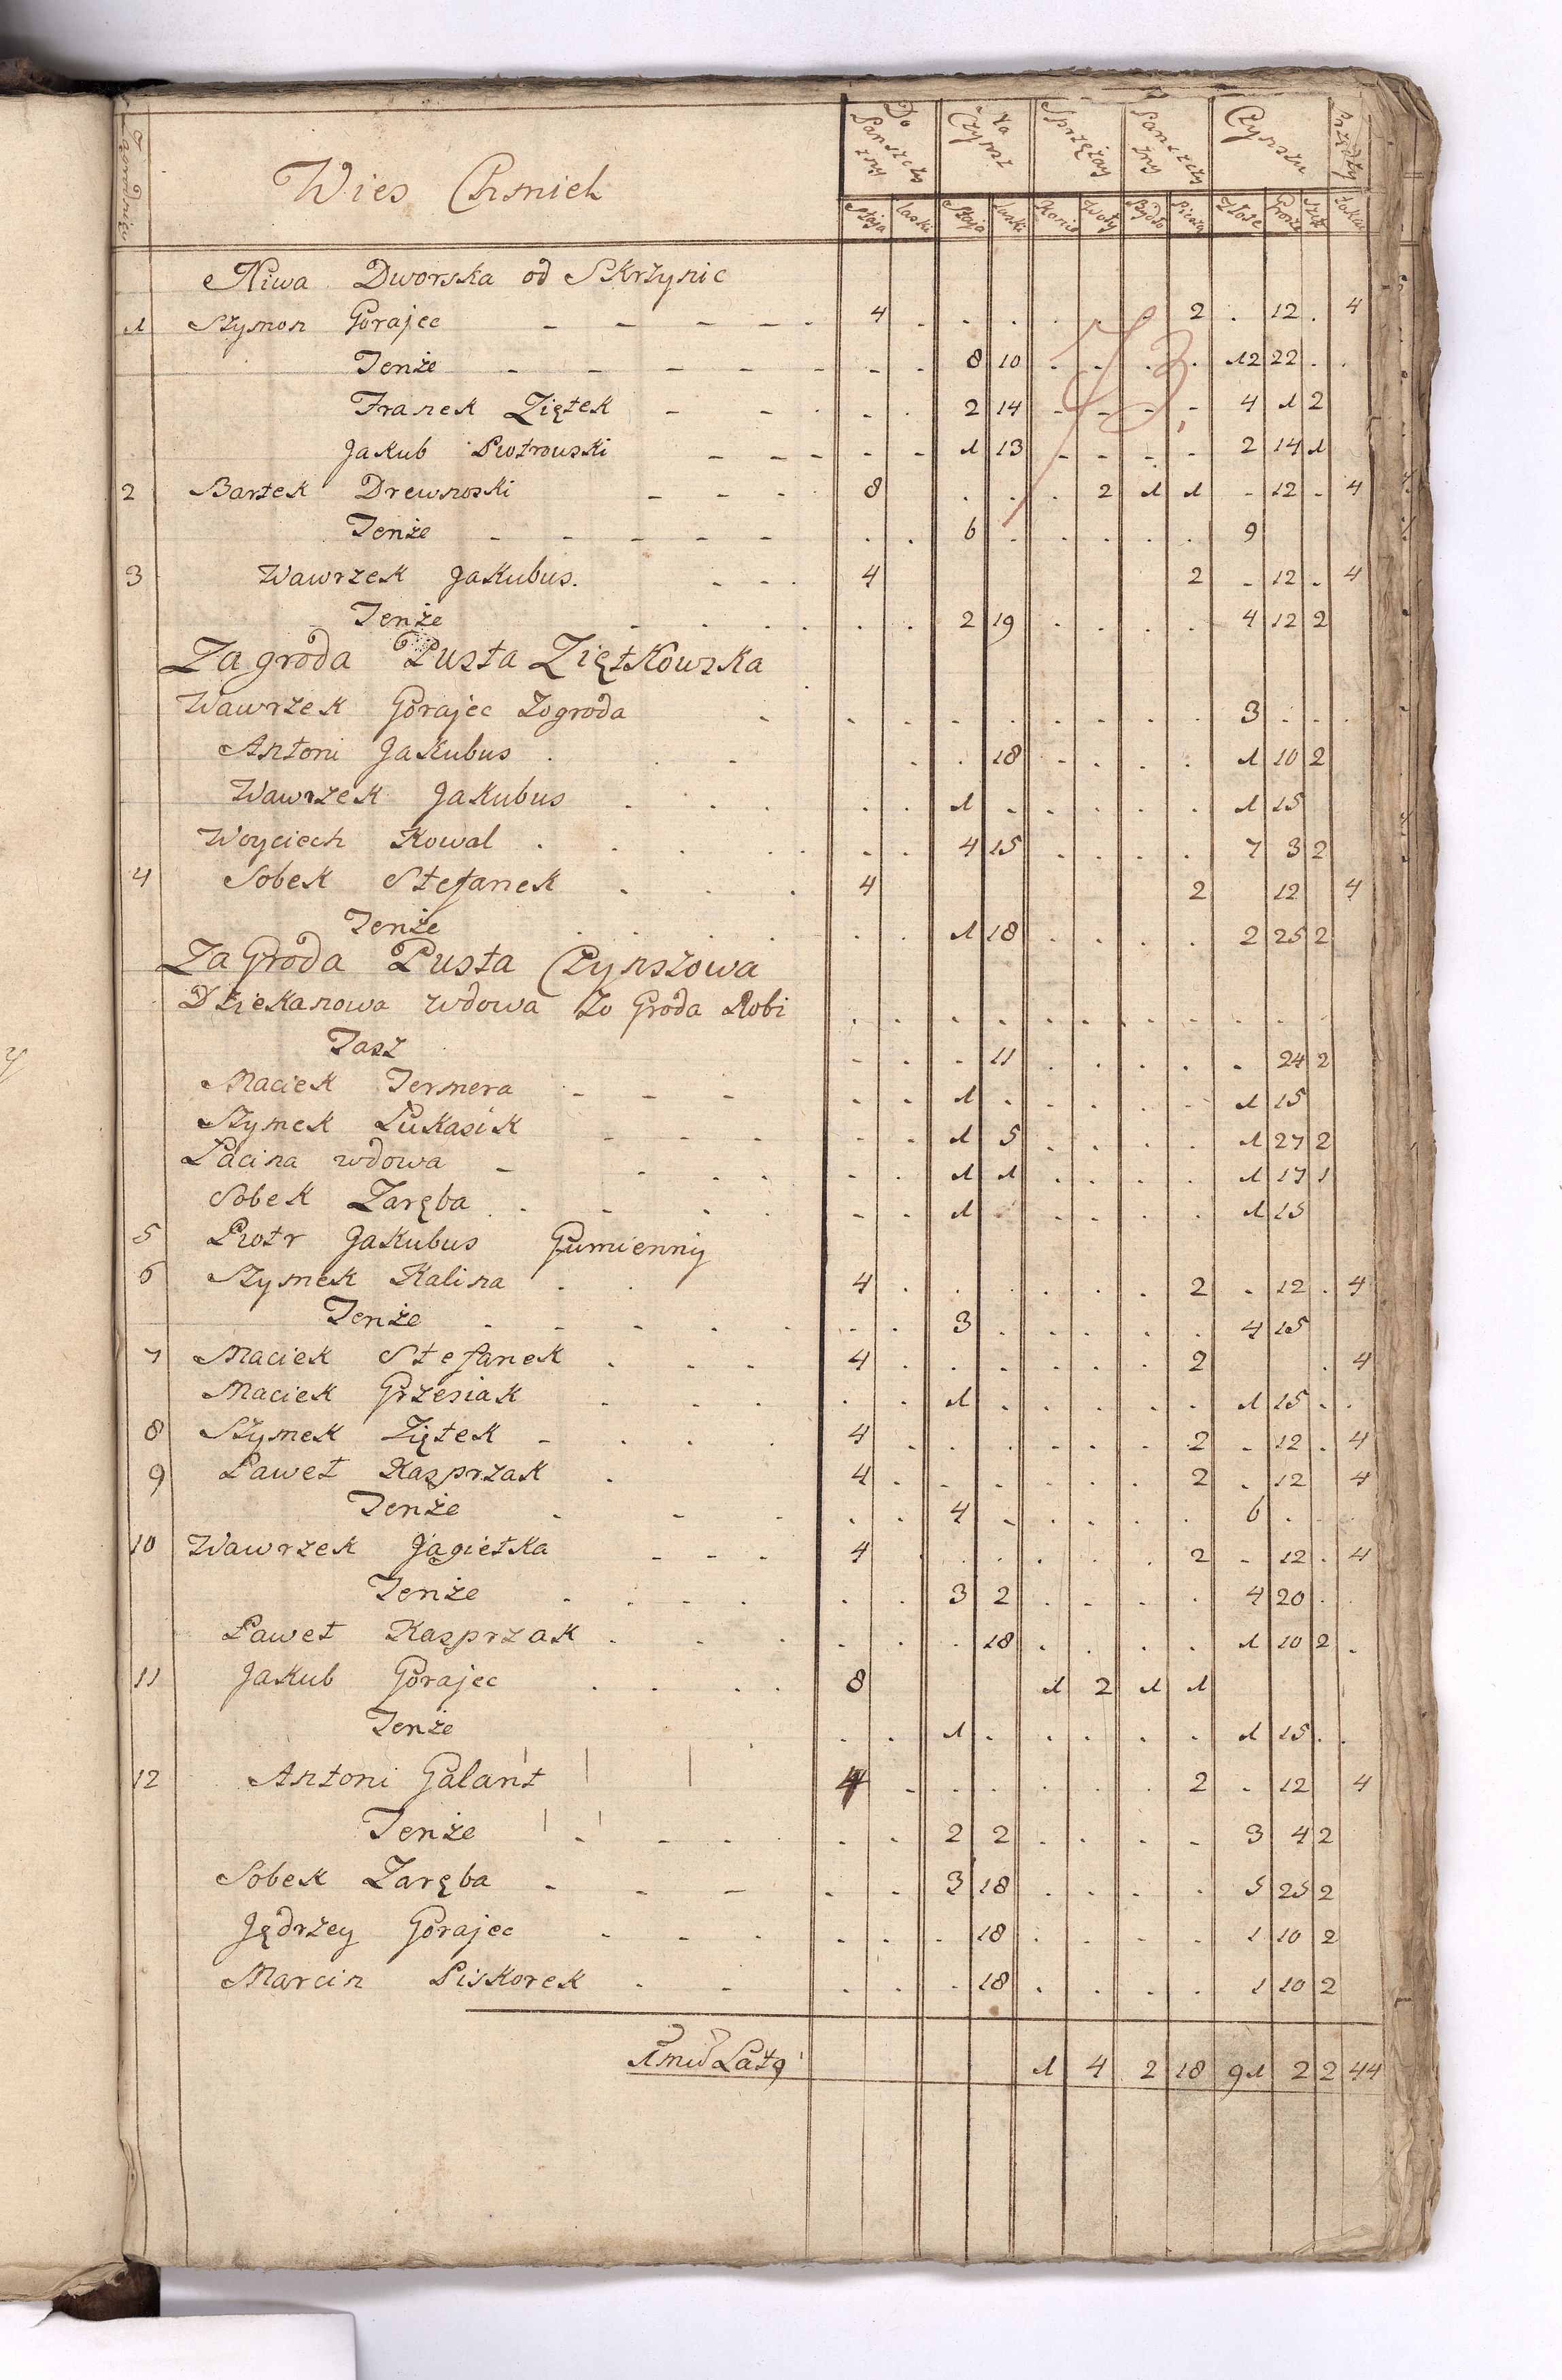 Wies Chmiel
Do Panszczyzny | Za Czynsz | Sprzężay | Panszczyzny | Czynszu | Przędzy
Staja | Laski | Staja | Laski | Konie | Woły | Bydło | Piesza | Złote | Grosze | Szel | Łokci
Niwa Dworska od Skrzynic
1 Szymon Gorajec 4 2 12 4
Tenże 8 10 12 22
Franek Ziętek 2 14 4 1 2
Jakub Piotrowski 1 13 2 14 1
2 Bartek Drewnoski 8 2 1 1 12 4
Tenże 6 9
3 Wawrzek Jakubus. 4 2 12 4
Tenże 2 19 4 12 2
Zagroda Pusta Ziętkowska
Wawrzek Gorajec Zogroda 3
Antoni Jakubus 18 1 10 2
Wawrzek Jakubus 1 1 15
Woyciech Kowal 4 15 7 3 2
4 Sobek Stefanek 4 2 12 4
Tenże 1 18 2 25 2
Za Groda Pusta Czynszowa
Dziekanowa wdowa Zo Groda Robi
Tasz 11 24 2
Maciek Jermera 1 1 15
Szymek Łukasik 1 5 1 27 2
Pacina wdowa 1 1 1 17 1
Sobek Zaręba 1 1 15
5 Piotr Jakubus Gumienny
6 Szymek Kalina 4 2 12 4
Tenże 3 4 15
7 Maciek Stefanek 4 2 4
Maciek Grzesiak 1 1 15
8 Szymek Ziętek 4 2 12 4
9 Paweł Kasprzak 4 2 12 4
Tenże 4 6
10 Wawrzek Jagiełka 4 2 12 4
Tenże 3 2 4 20
Paweł Kasprzak 18 1 10 2
11 Jakub Gorajec 8 1 2 1 1
Tenże 1 1 15
12 Antoni Galant 4 2 12 4
Tenże 2 2 3 4 2
Sobek Zaręba 3 18 5 25 2
Jędrzey Gorajec 18 1 10 2
Marcin Piskorek 18 1 10 2
1 4 2 18 91 2 2 44
73.